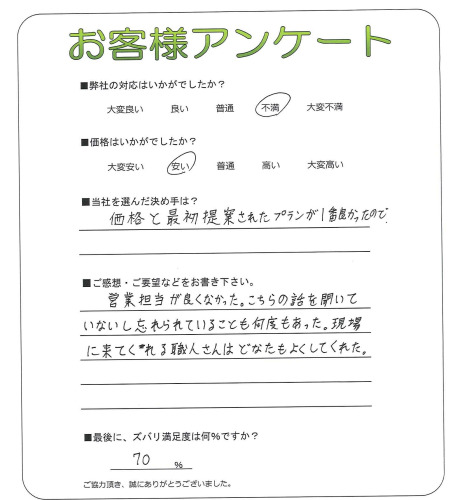 お客様アンケート
■弊社の対応はいかがでしたか？
大変良い 良い 普通 不満 大変不満
■価格はいかがでしたか？
大変安い 安い 普通 高い 大変高い
■当社を選んだ決め手は？
価格と最初提案されたプランが1番良かったので、
■ご感想・ご要望などをお書き下さい。
営業担当が良くなかった。こちらの話を聞いて
いないし忘れられていることも何度もあった。現場
に来てくれる職人さんはどなたもよくしてくれた。
■最後に、ズバリ満足度は何%ですか？
70 %
ご協力頂き、誠にありがとうございました。